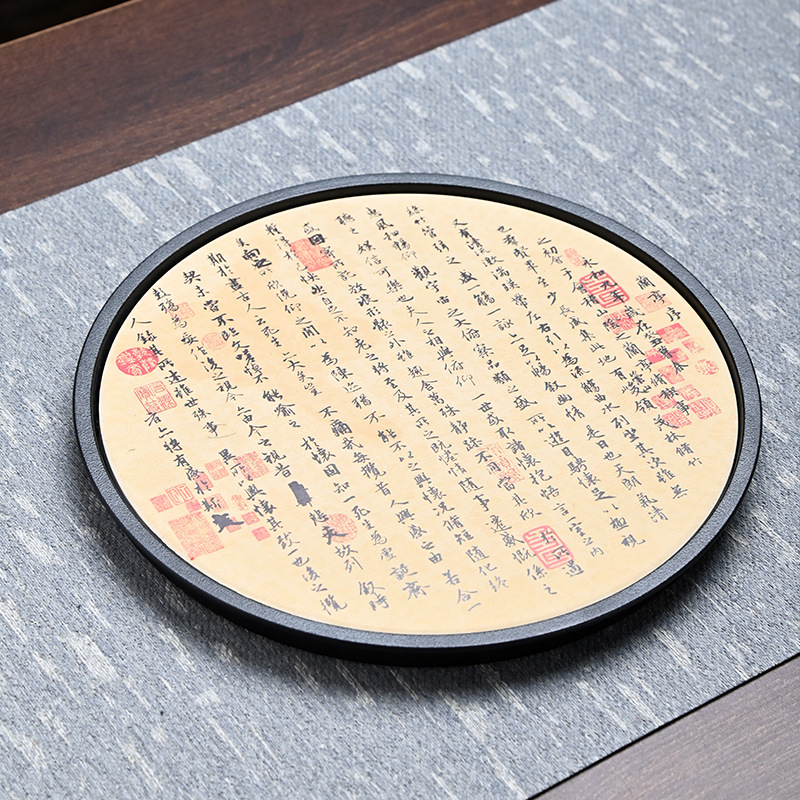 蘭亭序
永和九年歲在癸丑暮春
之初會于會稽山陰之蘭亭脩稧事
也羣賢畢至少長咸集此地有崇山峻領茂林脩竹
又有清流激湍暎帶左右引以為流觴曲水列坐其次雖無
絲竹管弦之盛一觴一詠亦足以暢叙幽情是日也天朗氣清
惠風和暢仰觀宇宙之大俯察品類之盛所以遊目騁懷足以極視
聽之娛信可樂也夫人之相與俯仰一世或取諸懷抱悟言一室之內
因寄所託放浪形骸之外雖趣舍萬殊靜躁不同當其欣於所遇
快然自足不知老之將至及其所之既惓情隨事遷感慨係之
矣向之所欣俛仰之間以為陳迹猶不能不以之興懷況脩短隨化終
期於盡古人云死生亦大矣豈不痛哉每攬昔人興感之由若合一
契未嘗不臨文嗟悼不能喻之於懷固知一死生為虛誕齊
彭殤為妄作後之視今亦由今之視昔悲夫故列叙時
人錄其所述雖世殊事異所以興懷其致一也後之攬
者亦將有感於斯文